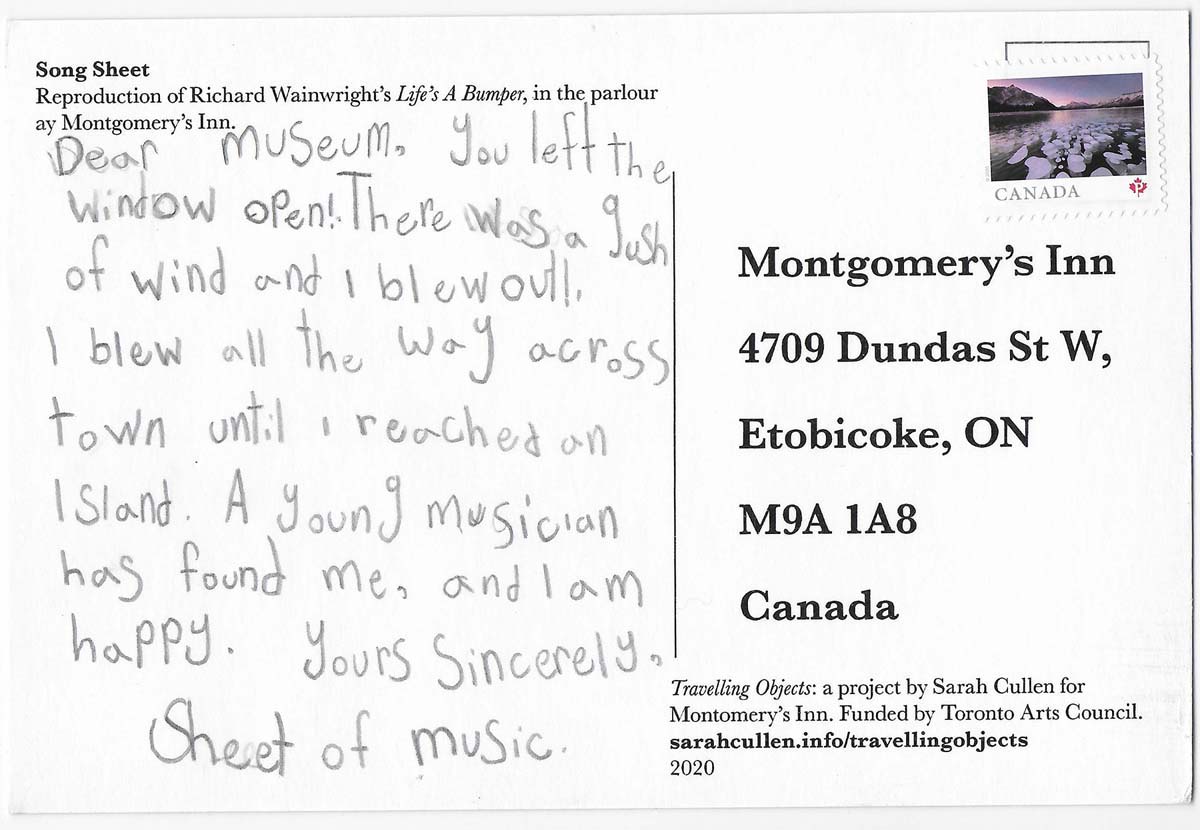 Song Sheet
Reproduction of Richard Wainwright's Life's A Bumper, in the parlour
ay Montgomery's Inn.
Dear museum, You left the
window open! There was a gush
of wind and I blew out!.
I blew all the way across
town until i reached an
Island. A young musician
has found me, and I am
happy. Yours Sincerely,
Sheet of music.
CANADA
P
Montgomery's Inn
4709 Dundas St W,
Etobicoke, ON
M9A 1A8
Canada
Travelling Objects: a project by Sarah Cullen for
Montomery's Inn. Funded by Toronto Arts Council.
sarahcullen.info/travellingobjects
2020